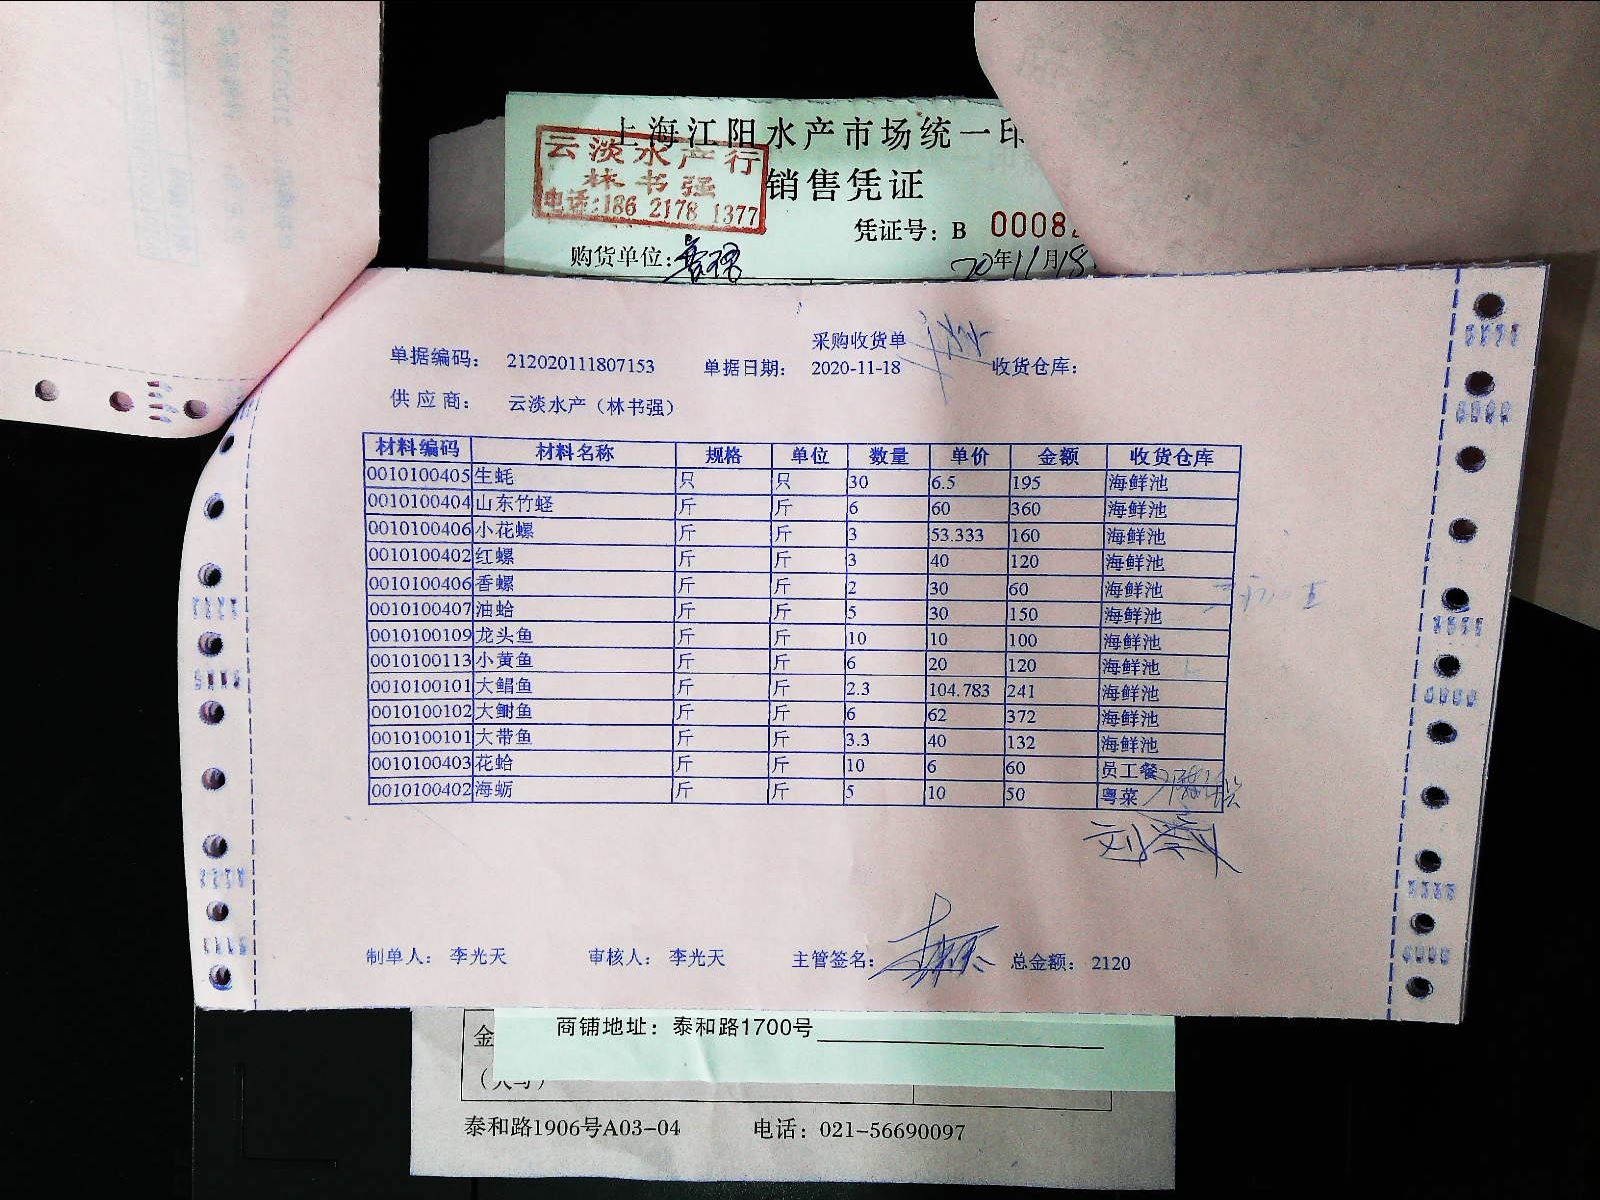 上海江阳水产市场统一印
云淡水产行
林书强
电话:186 2178 1377
销售凭证
凭证号: B 0008
购货单位:
20年11月18
采购收货单
单据编码: 212020111807153 单据日期: 2020-11-18 收货仓库:
供应商: 云淡水产（林书强）
材料编码 材料名称 规格 单位 数量 单价 金额 收货仓库
0010100405 生蚝 只 只 30 6.5 195 海鲜池
0010100404 山东竹蛏 斤 斤 6 60 360 海鲜池
0010100406 小花螺 斤 斤 3 53.333 160 海鲜池
0010100402 红螺 斤 斤 3 40 120 海鲜池
0010100406 香螺 斤 斤 2 30 60 海鲜池
0010100407 油蛤 斤 斤 5 30 150 海鲜池
0010100109 龙头鱼 斤 斤 10 10 100 海鲜池
0010100113 小黄鱼 斤 斤 6 20 120 海鲜池
0010100101 大鲳鱼 斤 斤 2.3 104.783 241 海鲜池
0010100102 大鲥鱼 斤 斤 6 62 372 海鲜池
0010100101 大带鱼 斤 斤 3.3 40 132 海鲜池
0010100403 花蛤 斤 斤 10 6 60 员工餐
0010100402 海蛎 斤 斤 5 10 50 粤菜
制单人: 李光天 审核人: 李光天 主管签名: 总金额: 2120
商铺地址: 泰和路1700号
金
泰和路1906号A03-04 电话: 021-56690097